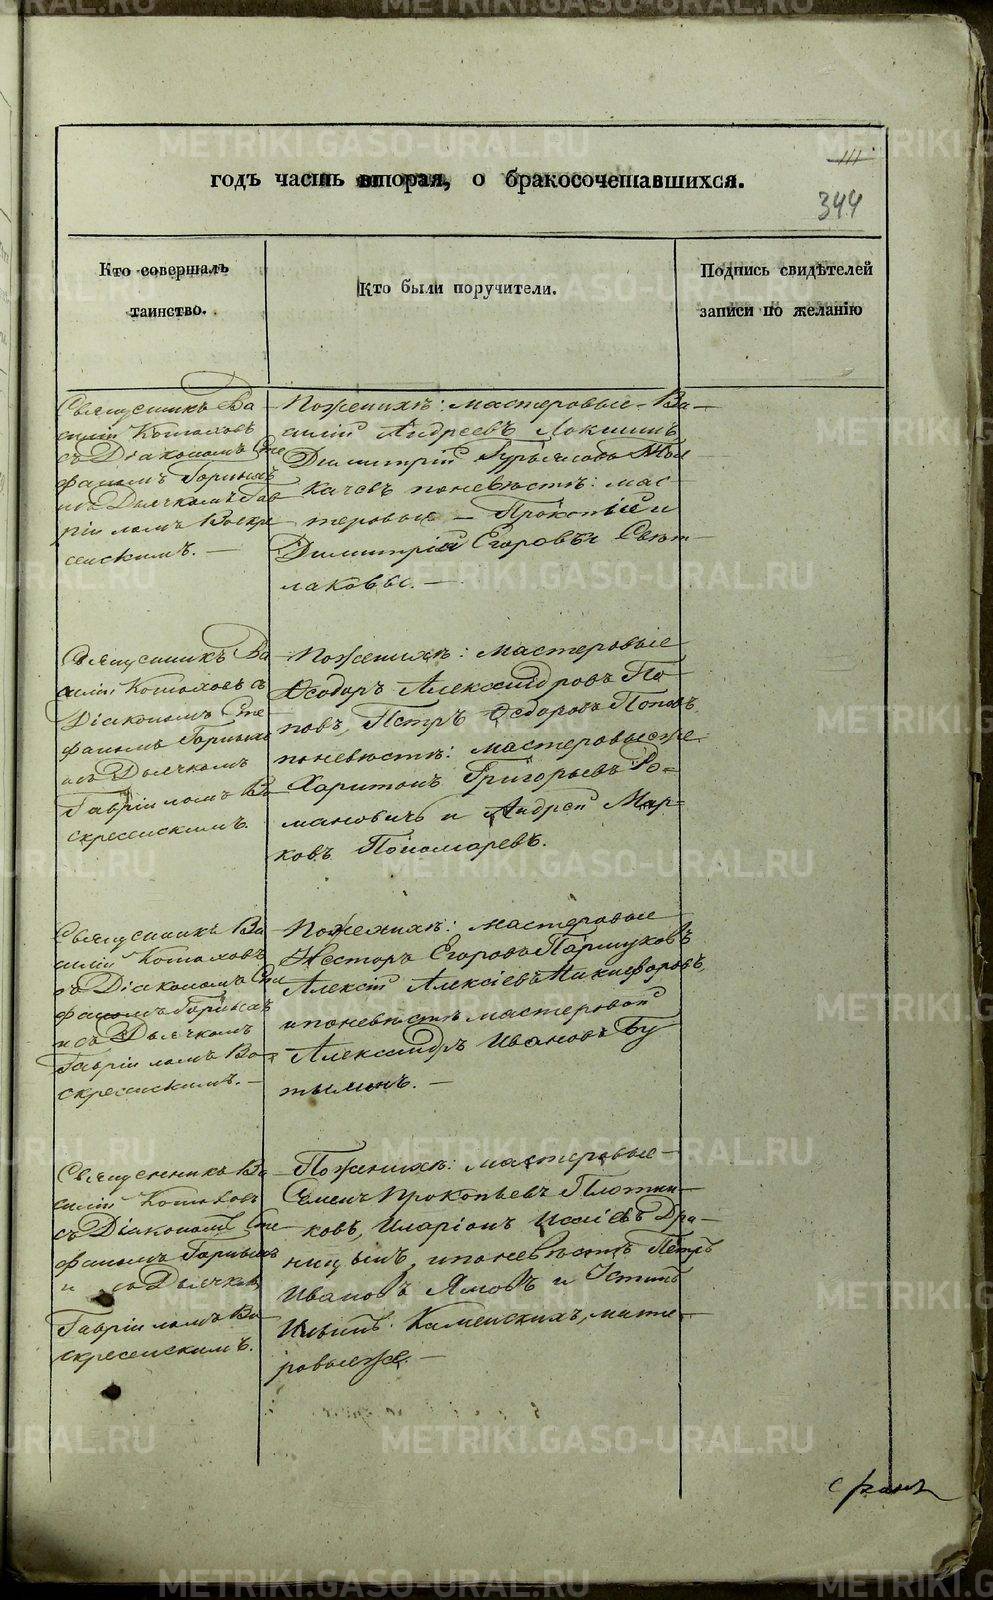 годъ часть вторая, о бракосочетавшихся.
111
344
Кто совершалъ
таинство.
Кто были поручители.
Подпись свидѣтелей
записи по желанію
Священникъ Ва
силій Коташовъ
съ Діакономъ Сте
фаномъ Горныхъ
и съ Дьячкомъ Гав
ріиломъ Воскре
сенскимъ. —
По женихѣ: мастеровые — Ва
силій Андреевъ Локшинъ
Димитрій Гурьяновъ Тол
качевъ по невѣстѣ: мас
теровые — Прокопій и
Димитрій Егоровъ Свѣт
лаковы. —
Священникъ Ва
силій Коташовъ съ
Діакономъ Сте
фаномъ Горныхъ
и съ Дьячкомъ
Гавріиломъ Во
скресенскимъ.
По женихѣ: мастеровые
Ѳеодоръ Александровъ По
повъ, Петръ Ѳедоровъ Поповъ
по невѣстѣ: мастеровые же
Харитонъ Григорьевъ Ро=
мановичъ и Андрей Мар=
ковъ Пономаревъ.
Священникъ Ва
силій Коташовъ
съ Діакономъ Сте
фаномъ Горныхъ
и съ Дьячкомъ
Гавріиломъ Во
скресенскимъ. —
По женихѣ: мастеровые
Несторъ Егоровъ Паршуковъ
Алексій Алексіевъ Никифоровъ,
и по невѣстѣ мастеровой
Александръ Ивановъ Бу
тылинъ. —
Священникъ Ва
силій Коташовъ
съ Діакономъ Сте
фаномъ Горныхъ
и съ Дьячкомъ
Гавріиломъ Во
скресенскимъ.
По женихѣ: мастеровые —
Семенъ Прокопьевъ Плотни
ковъ, Иларіонъ Исаіевъ Дра
ницынъ, и по невѣстѣ Петръ
Ивановъ Ямовъ и Устинъ
Ильинъ Каменскихъ, масте
ровые же. —
METRIKI.GASO-URAL.RU